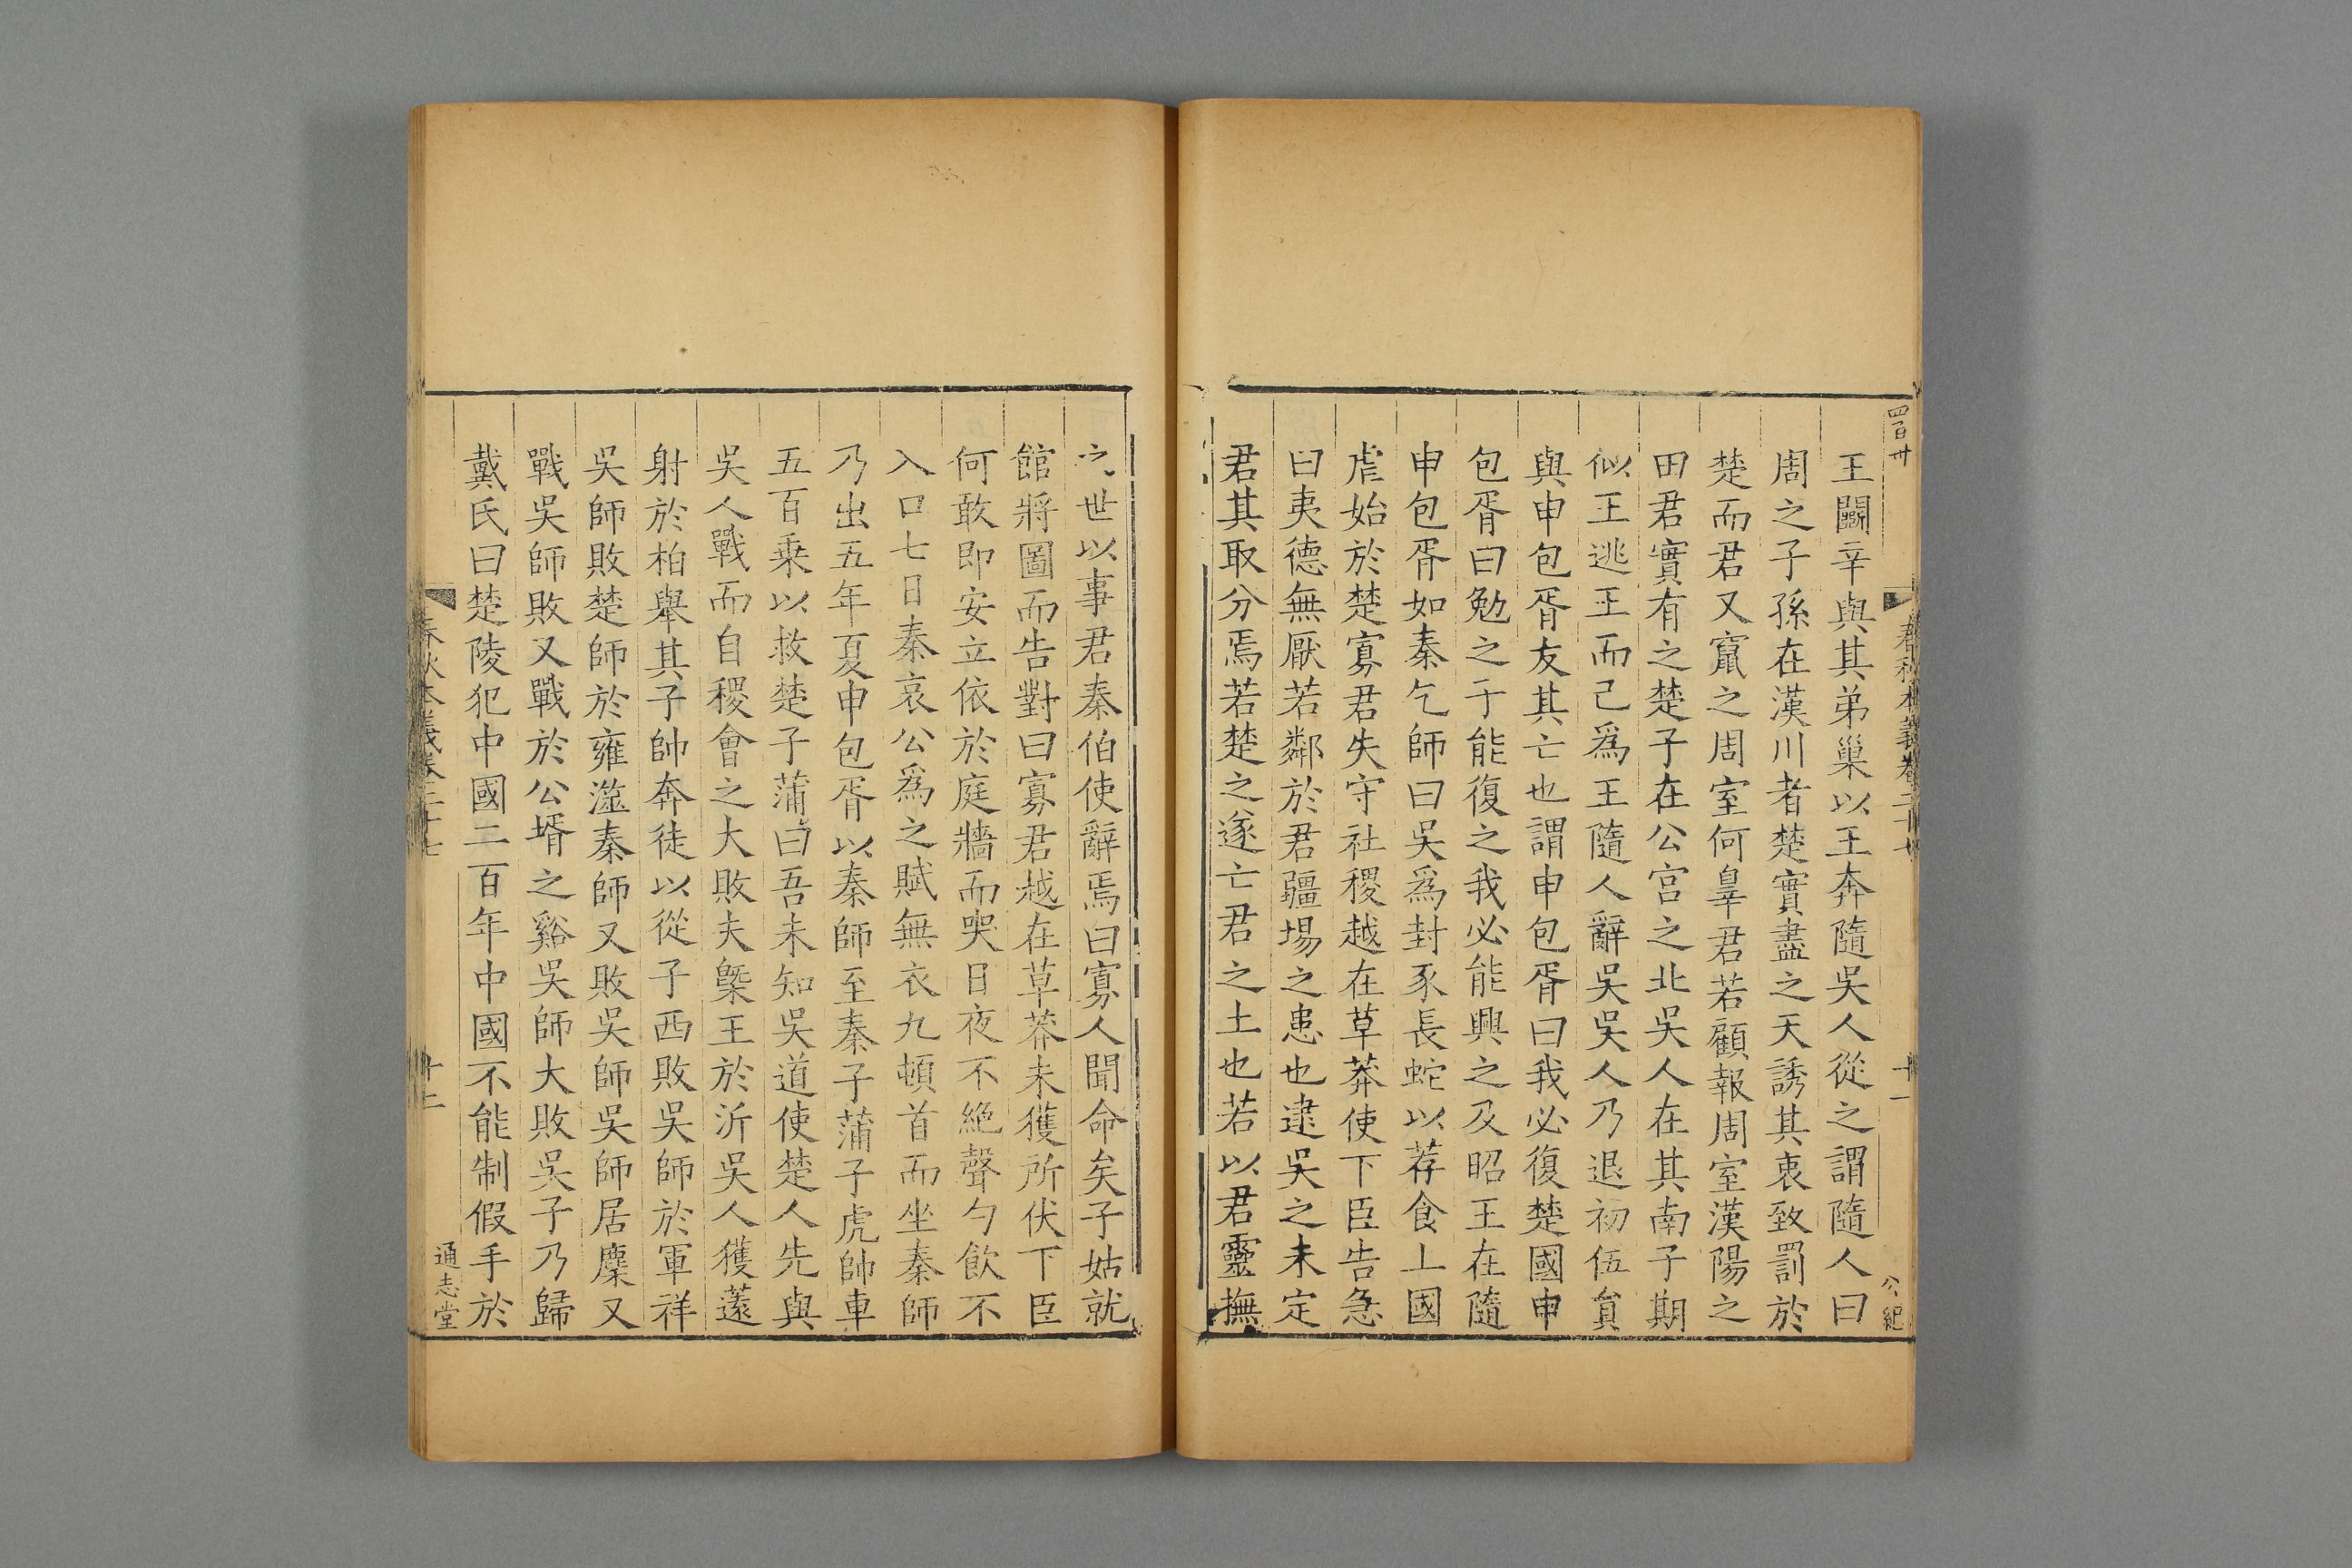 四百卅
春秋本義卷二十七
十一
公紀
王鬬辛與其弟巢以王奔隨吳人從之謂隨人曰
周之子孫在漢川者楚實盡之天誘其衷致罰於
楚而君又竄之周室何辠君若顧報周室漢陽之
田君實有之楚子在公宮之北吳人在其南子期
似王逃王而己為王隨人辭吳吳人乃退初伍員
與申包胥友其亡也謂申包胥曰我必復楚國申
包胥曰勉之于能復之我必能興之及昭王在隨
申包胥如秦乞師曰吳為封豕長蛇以荐食上國
虐始於楚寡君失守社稷越在草莽使下臣告急
曰夷德無厭若鄰於君疆埸之患也逮吳之未定
君其取分焉若楚之遂亡君之土也若以君靈撫
之世以事君秦伯使辭焉曰寡人聞命矣子姑就
館將圖而告對曰寡君越在草莽未獲所伏下臣
何敢即安立依於庭牆而哭日夜不絕聲勺飲不
入口七日秦哀公為之賦無衣九頓首而坐秦師
乃出五年夏申包胥以秦師至秦子蒲子虎帥車
五百乘以救楚子蒲曰吾未知吳道使楚人先與
吳人戰而自稷會之大敗夫槩王於沂吳人獲薳
射於柏舉其子帥奔徒以從子西敗吳師於軍祥
吳師敗楚師於雍澨秦師又敗吳師吳師居麇又
戰吳師敗又戰於公壻之谿吳師大敗吳子乃歸
戴氏曰楚陵犯中國二百年中國不能制假手於
春秋本義卷二十七
十二
通志堂